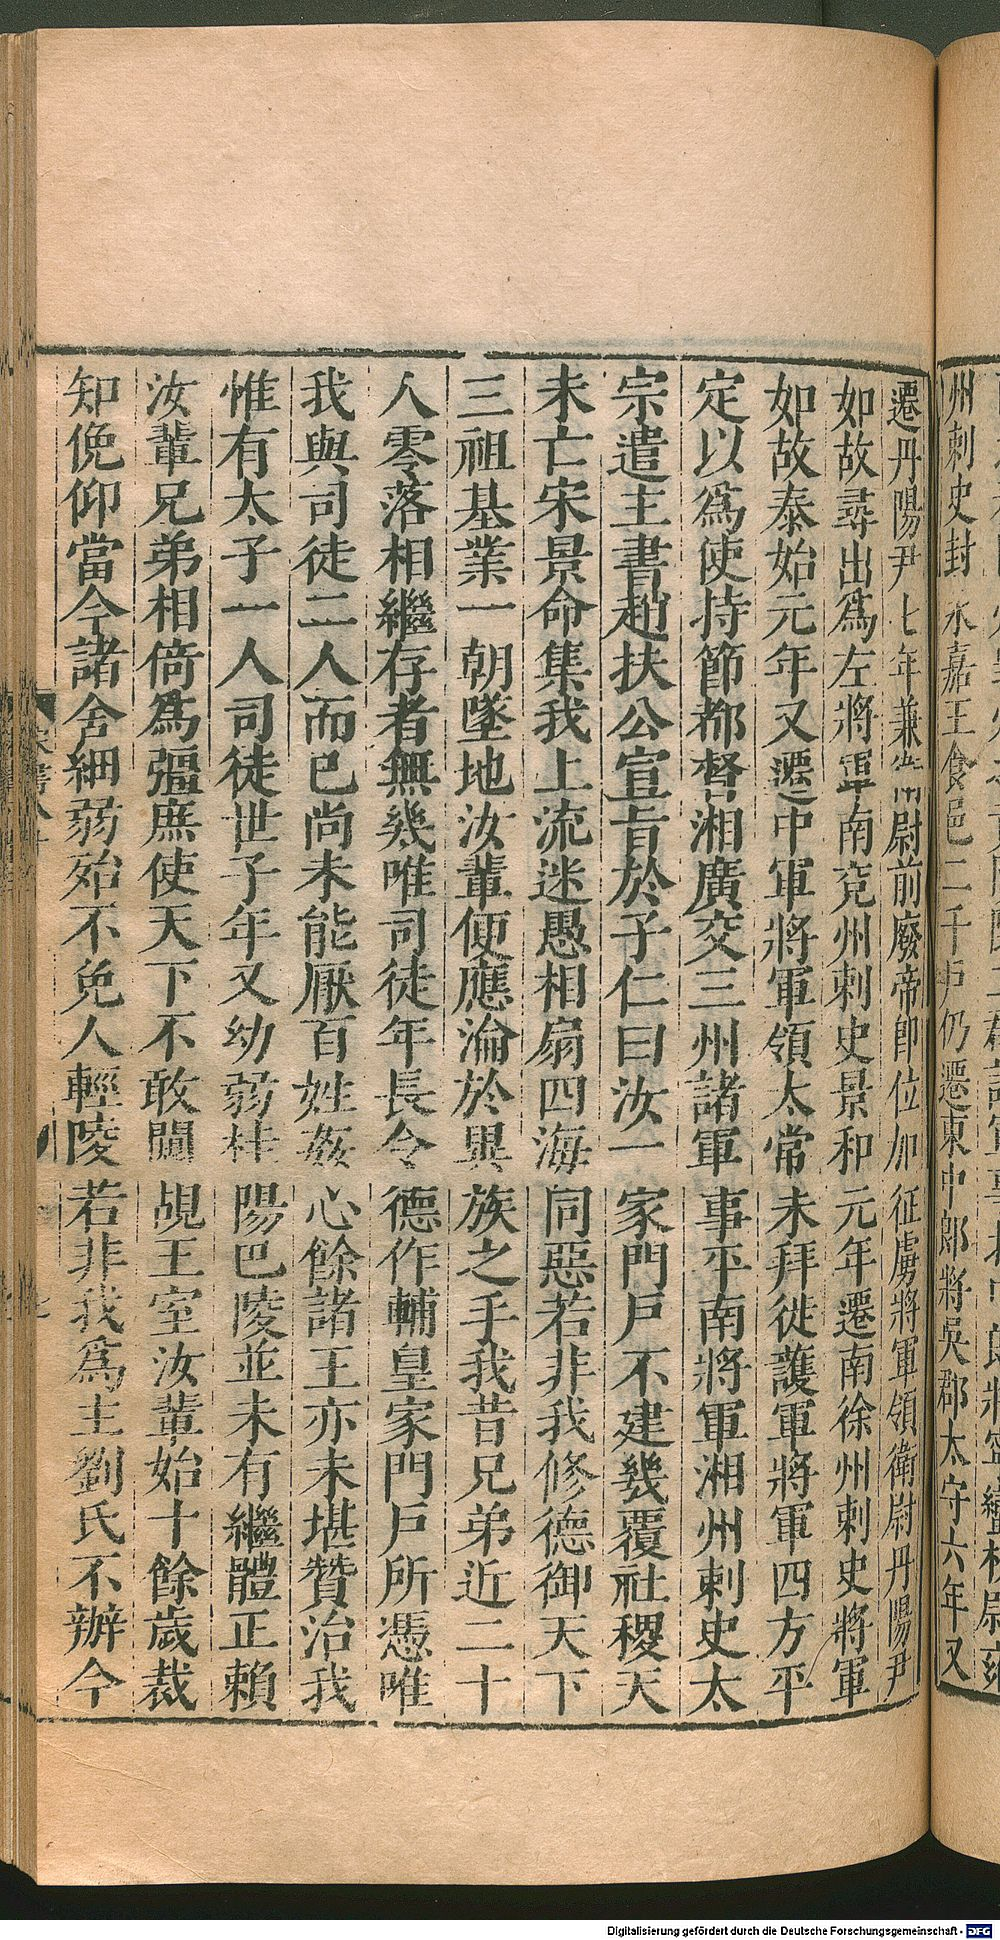 州刺史封永嘉王食邑二千戶仍遷東中郎將吳郡太守六年又
遷丹陽尹七年兼衛尉前廢帝即位加征虜將軍領衛尉丹陽尹
如故尋出爲左將軍南兗州刺史景和元年遷南徐州刺史將軍
如故泰始元年又遷中軍將軍領太常未拜徙護軍將軍四方平
定以爲使持節都督湘廣交三州諸軍事平南將軍湘州刺史太
宗遣主書趙扶公宣旨於子仁曰汝一家門戶不建幾覆社稷天
未亡宋景命集我上流迷愚相扇四海同惡若非我修德御天下
三祖基業一朝墜地汝輩便應淪於異族之手我昔兄弟近二十
人零落相繼存者無幾唯司徒年長令德作輔皇家門戶所憑唯
我與司徒二人而已尚未能厭百姓姦心餘諸王亦未堪贊治我
惟有太子一人司徒世子年又幼弱桂陽巴陵並未有繼體正賴
汝輩兄弟相倚爲彊庶使天下不敢闚覘王室汝輩始十餘歲裁
知俛仰當今諸舍細弱殆不免人輕陵若非我爲主劉氏不辦今
Digitalisierung gefördert durch die Deutsche Forschungsgemeinschaft - DFG